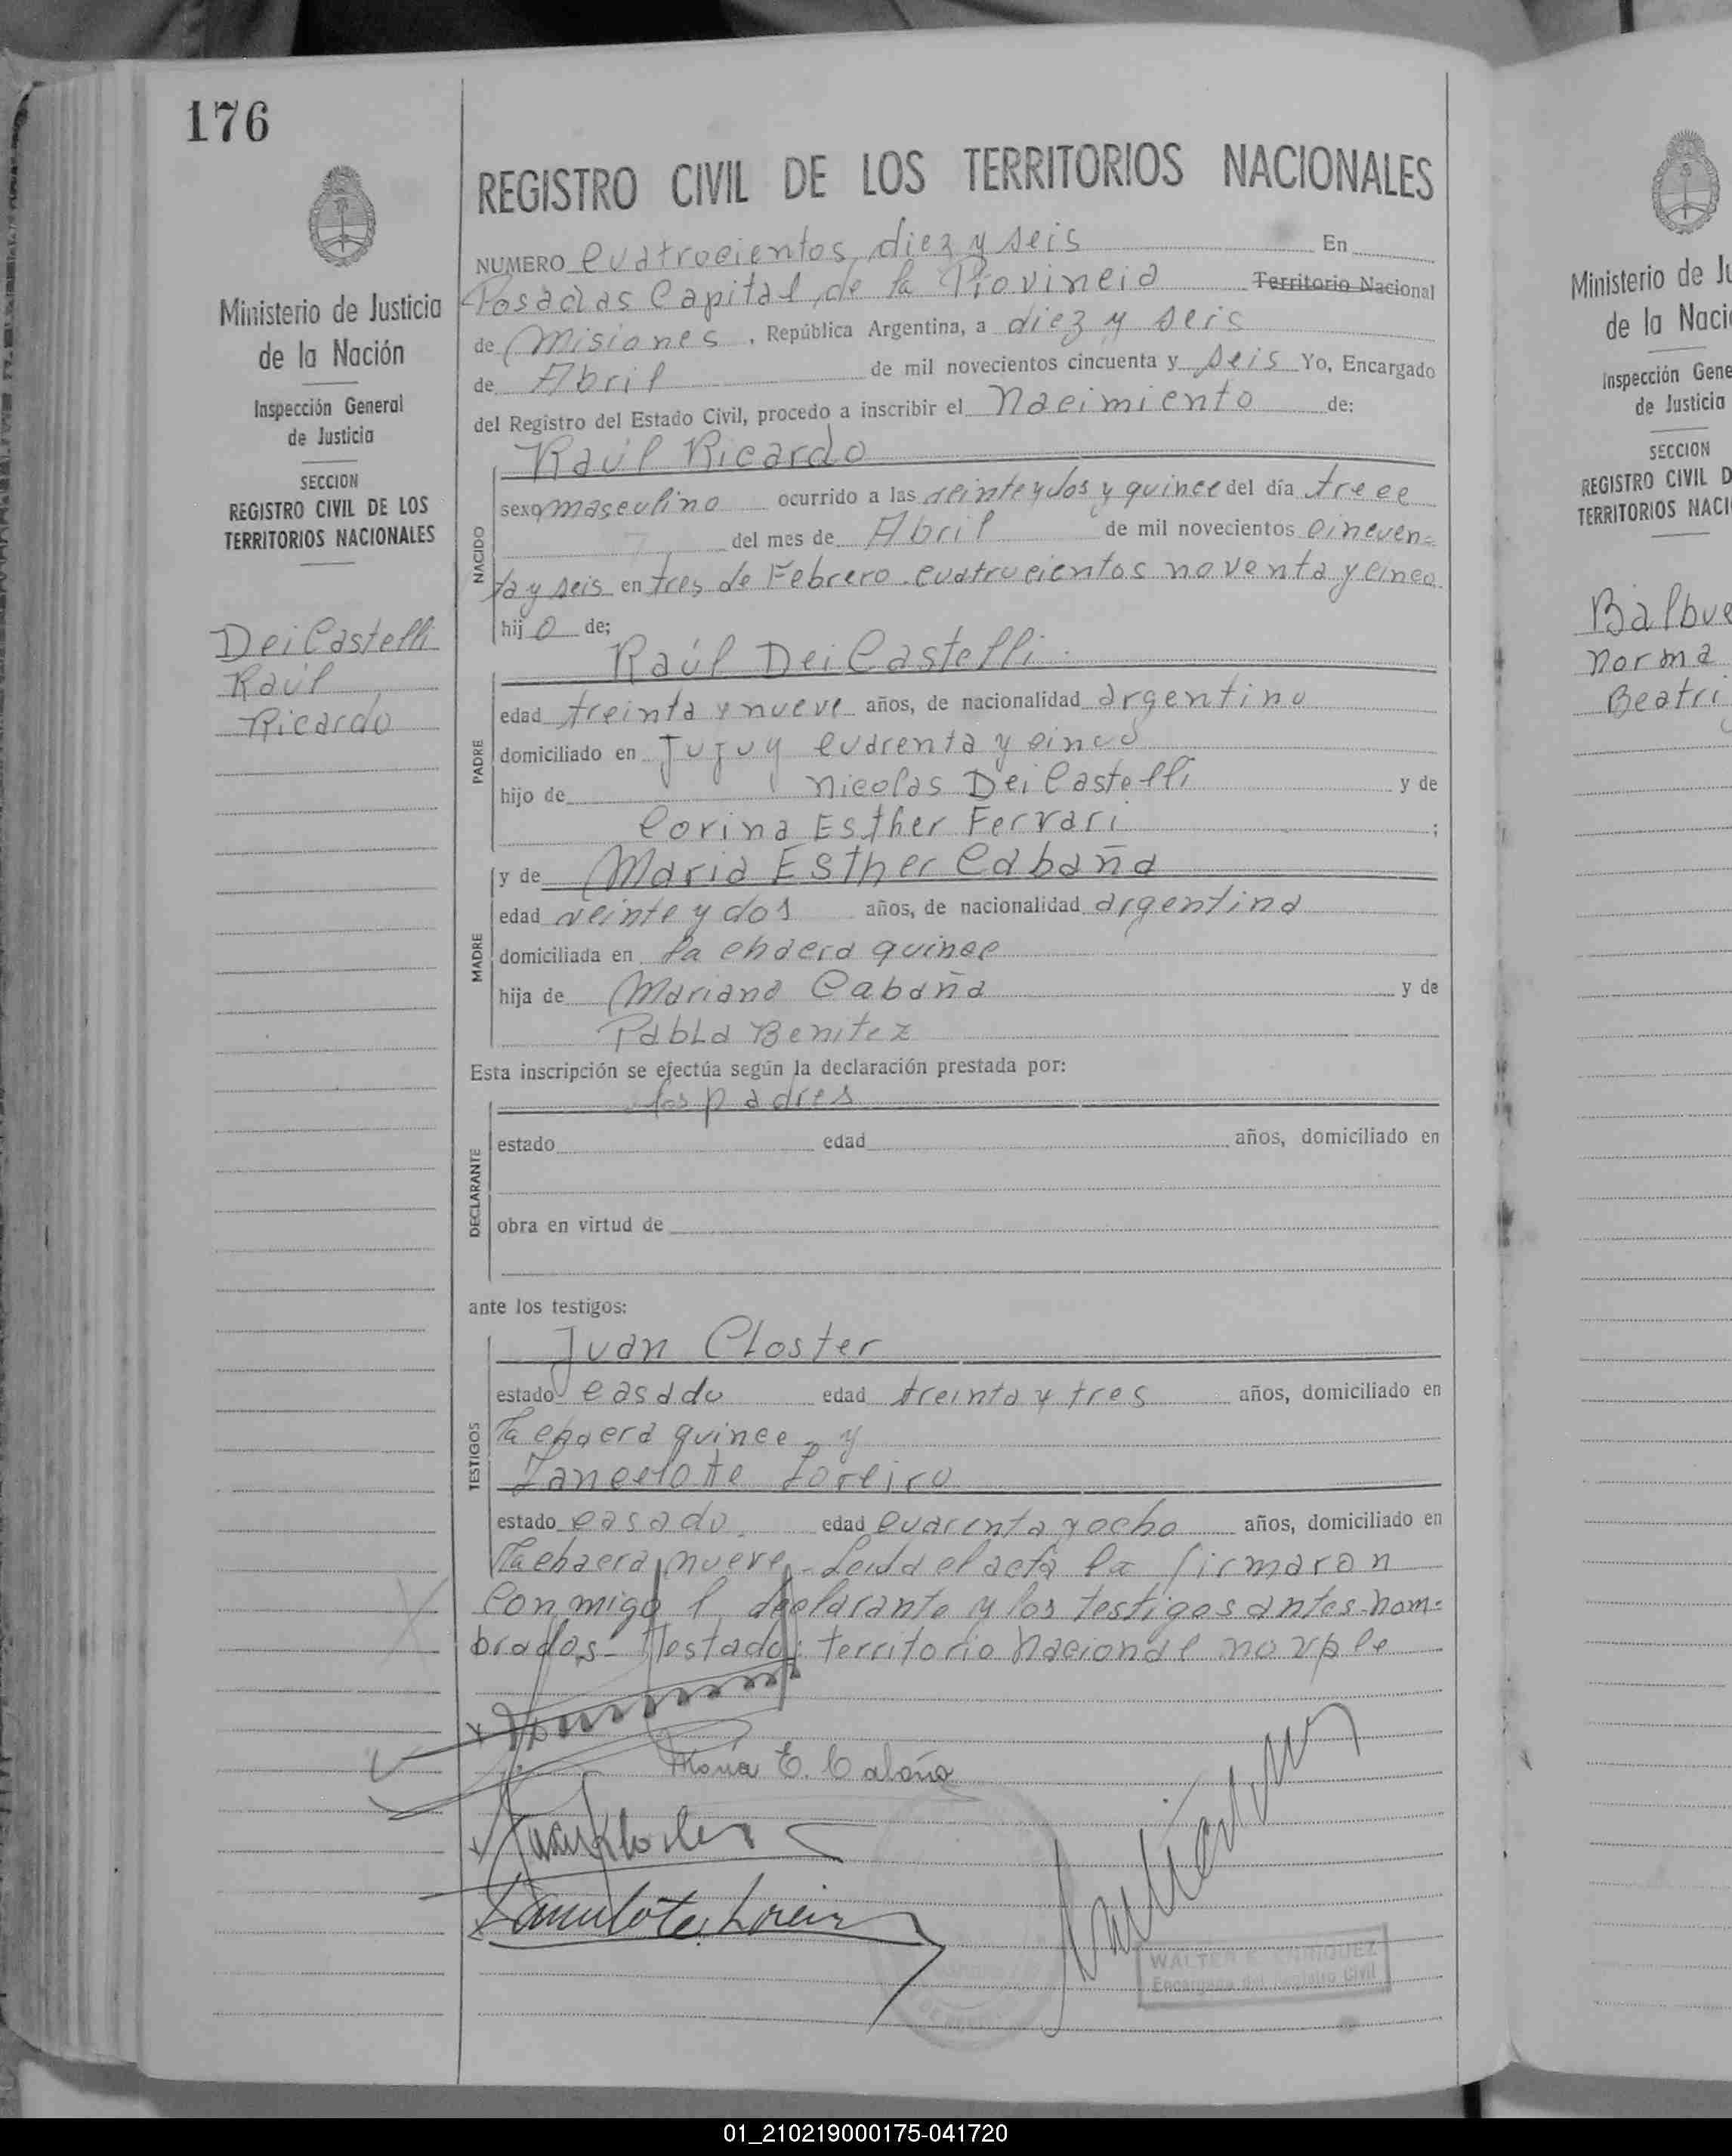 176
Ministerio de Justicia
de la Nación
Inspección General
de Justicia
SECCION
REGISTRO CIVIL DE LOS
TERRITORIOS NACIONALES
Dei Castelli
Raúl
Ricardo
REGISTRO CIVIL DE LOS TERRITORIOS NACIONALES
NUMERO cuatrocientos diez y seis En
Posadas Capital de la Provincia Territorio Nacional
de Misiones, República Argentina, a diez y seis
de Abril de mil novecientos cincuenta y seis Yo, Encargado
del Registro del Estado Civil, procedo a inscribir el nacimiento de:
Raúl Ricardo
NACIDO
sexo masculino ocurrido a las veinte y dos y quince del día trece
del mes de Abril de mil novecientos cincuen-
ta y seis en tres de Febrero cuatrocientos noventa y cinco
hijo de;
Raúl Dei Castelli
PADRE
edad treinta y nueve años, de nacionalidad argentino
domiciliado en Jujuy cuarenta y cinco
hijo de Nicolas Dei Castelli y de
Corina Esther Ferrari ;
y de Maria Esther Cabaña
MADRE
edad veinte y dos años, de nacionalidad argentina
domiciliada en la chacra quince
hija de Mariano Cabaña y de
Pabla Benitez
Esta inscripción se efectúa según la declaración prestada por:
los padres
DECLARANTE
estado edad años, domiciliado en
obra en virtud de
ante los testigos:
Juan Closter
TESTIGOS
estado casado edad treinta y tres años, domiciliado en
la chacra quince y
Lancelotte Loreiro
estado casado. edad cuarenta y ocho años, domiciliado en
la chacra nueve - Leida el acta la firmaron
conmigo l declarante y los testigos antes nom-
brados - Testado: territorio nacional no vale
María E. Cabaña
Juan Kloster
Lancelote Loreiro
WALTER E. ENRIQUEZ
Encargado del Registro Civil
Ministerio de Ju
de la Naci
Inspección Gene
de Justicia
SECCION
REGISTRO CIVIL D
TERRITORIOS NACI
Balbue
Norma
Beatri
01_210219000175-041720